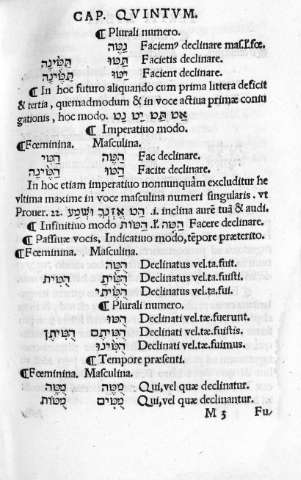 CAP. QVINTVM.
¶ Plurali numero.
נַטֶּה Faciemꝰ declinare mas.ł.fœ.
תַּטֶּינָה תַּטּוּ Facietis declinare.
תַּטֶּינָה יַטּוּ Facient declinare.
¶ In hoc futuro aliquando cum prima littera deficit
& tertia, quemadmodum & in voce actiua primæ coniu
gationis, hoc modo. אט תט יט נט
¶ Imperatiuo modo.
¶ Fœminina. Masculina.
הַטִּי הַטֵּה Fac declinare.
הַטֶּינָה הַטּוּ Facite declinare.
In hoc etiam imperatiuo nonnunquàm excluditur he
vltima maxime in voce masculina numeri singularis. vt
Prouer. 22. הַט אָזְנְךָ וּשְׁמַע .i. inclina aurē tuā & audi.
¶ Infinitiuo modo הַטֵּה .ł. הַטּוֹת Facere declinare.
¶ Passiuæ vocis, Indicatiuo modo, tēpore præterito.
¶ Fœminina. Masculina.
הֻטָּה Declinatus vel.ta.fuit.
הֻטֵּית הֻטֵּיתָ Declinatus vel.ta.fuisti.
הֻטֵּיתִי Declinatus vel.ta.fui.
¶ Plurali numero.
הֻטּוּ Declinati vel.tæ.fuerunt.
הֻטֵּיתֶן הֻטֵּיתֶם Declinati vel.tæ.fuistis.
הֻטֵּינוּ Declinati vel.tæ.fuimus.
¶ Tempore præsenti.
¶ Fœminina. Masculina.
מֻטָּה מֻטֶּה Qui, vel quæ declinatur.
מֻטּוֹת מֻטִּים Qui, vel quæ declinantur.
M 3 Fu